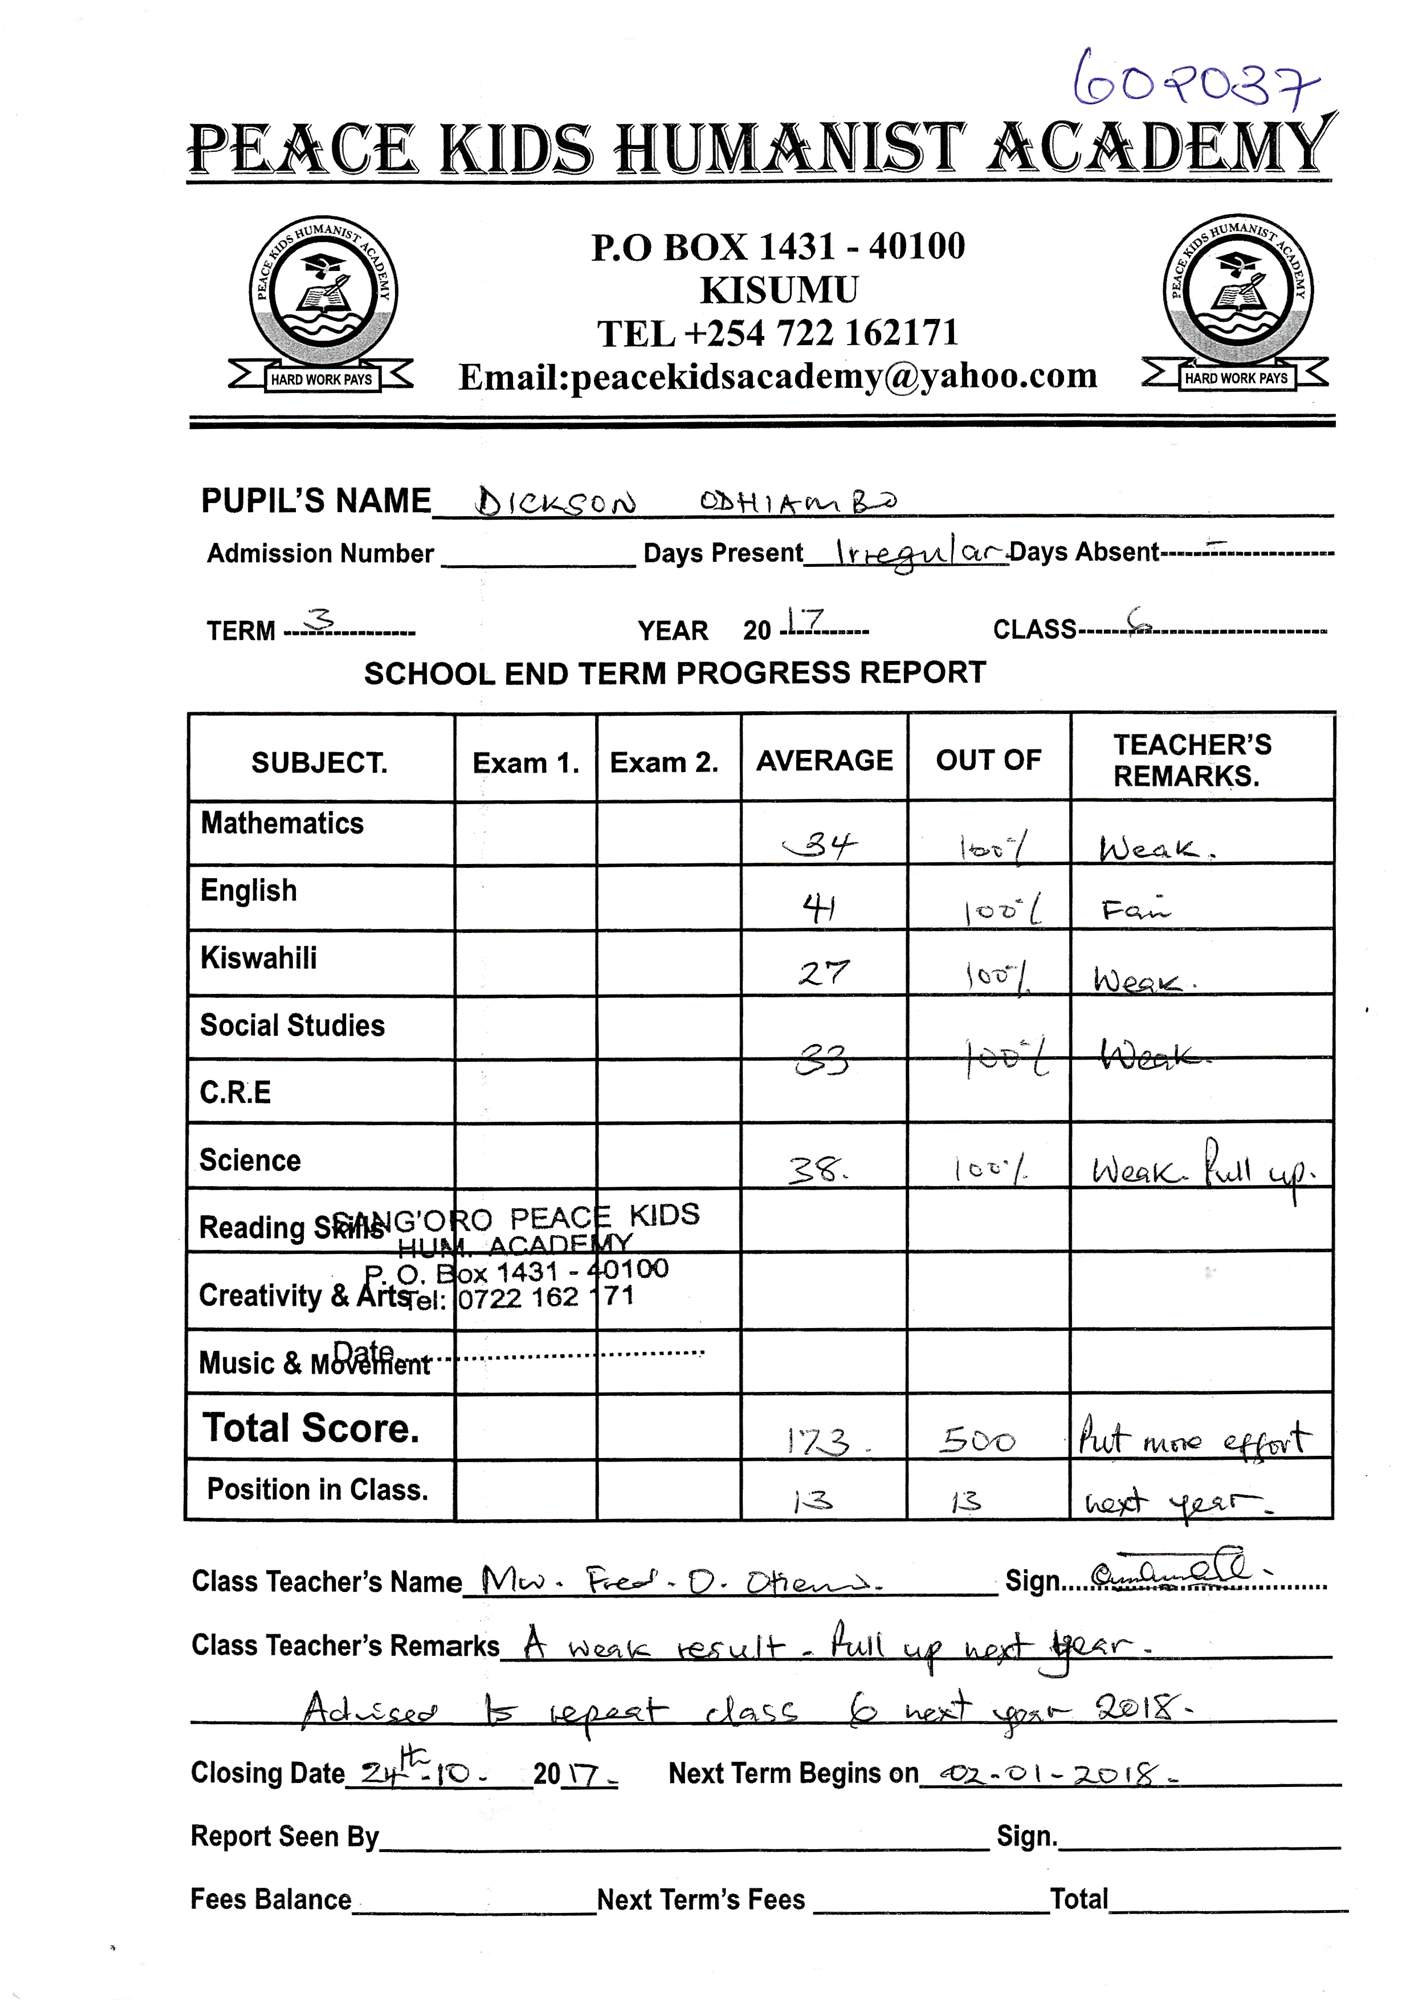 609037
PEACE KIDS HUMANIST ACADEMY
PEACE KIDS HUMANIST ACADEMY
HARD WORK PAYS
P.O BOX 1431 - 40100
KISUMU
TEL +254 722 162171
Email:peacekidsacademy@yahoo.com
PEACE KIDS HUMANIST ACADEMY
HARD WORK PAYS
PUPIL'S NAME DICKSON ODHIAMBO
Admission Number Days Present Irregular. Days Absent -
TERM 3 YEAR 2017 CLASS 6
SCHOOL END TERM PROGRESS REPORT
SUBJECT. Exam 1. Exam 2. AVERAGE OUT OF TEACHER'S REMARKS.
Mathematics 34 100% Weak.
English 41 100% Fair
Kiswahili 27 100% Weak.
Social Studies 33 100% Weak.
C.R.E
Science 38. 100% Weak. Pull up.
Reading Skills
SANG'ORO PEACE KIDS
HUM. ACADEMY
P. O. Box 1431 - 40100
Creativity & Arts
Tel: 0722 162 171
Music & Movement
Date
Total Score. 173. 500 Put more effort
Position in Class. 13 13 next year.
Class Teacher's Name Mw. Fred. O. Otieno. Sign
Class Teacher's Remarks A weak result. Pull up next year.
Advised to repeat class 6 next year 2018.
Closing Date 24th-10. 2017. Next Term Begins on 02-01-2018.
Report Seen By Sign.
Fees Balance Next Term's Fees Total